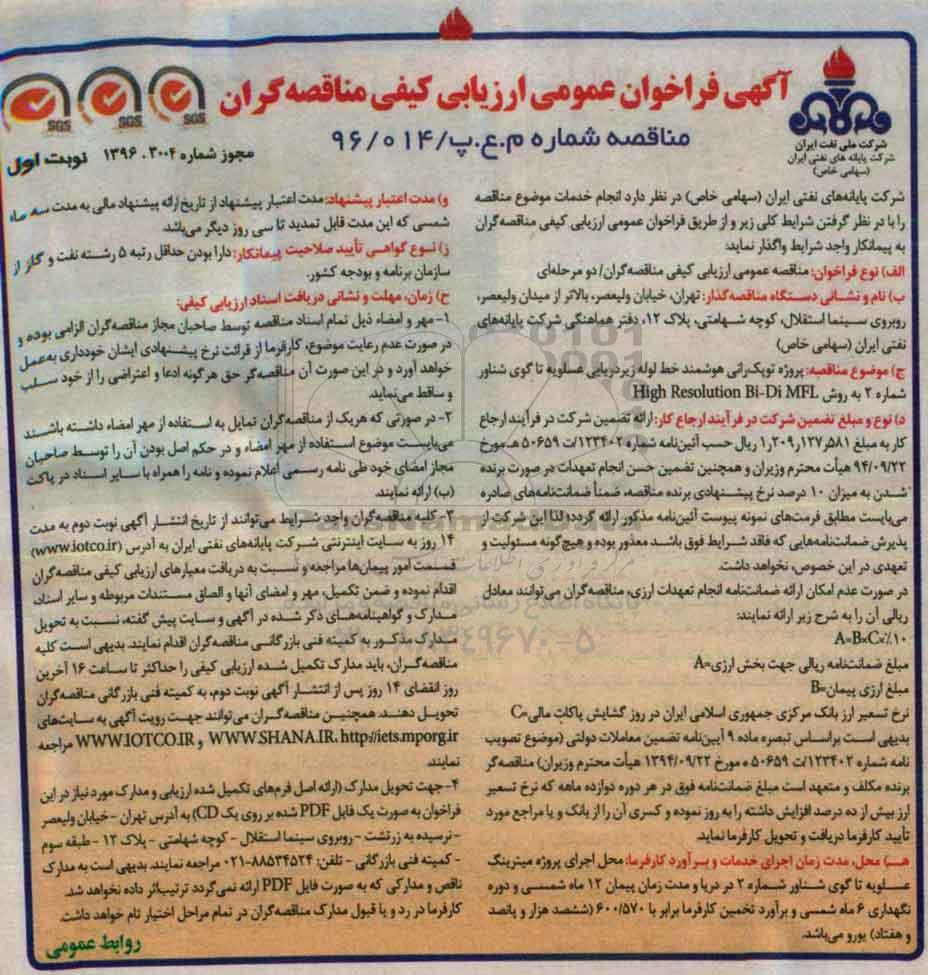 آگهی فراخوان عمومی ارزیابی کیفی مناقصه‌گران
مناقصه شماره م.ع.پ/۹۶/۰۱۴
مجوز شماره ۱۳۹۶.۳۰۰۴
نوبت اول
SGS
SGS
SGS
شرکت ملی نفت ایران
شرکت پایانه های نفتی ایران
(سهامی خاص)
شرکت پایانه‌های نفتی ایران (سهامی خاص) در نظر دارد انجام خدمات موضوع مناقصه
را با در نظر گرفتن شرایط کلی زیر و از طریق فراخوان عمومی ارزیابی کیفی مناقصه‌گران
به پیمانکار واجد شرایط واگذار نماید:
الف) نوع فراخوان: مناقصه عمومی ارزیابی کیفی مناقصه‌گران/ دو مرحله‌ای
ب) نام و نشانی دستگاه مناقصه‌گذار: تهران، خیابان ولیعصر، بالاتر از میدان ولیعصر،
روبروی سینما استقلال، کوچه شهامتی، پلاک ۱۲، دفتر هماهنگی شرکت پایانه‌های
نفتی ایران (سهامی خاص)
ج) موضوع مناقصه: پروژه توپک‌رانی هوشمند خط لوله زیردریایی عسلویه تا گوی شناور
شماره ۲ به روش High Resolution Bi-Di MFL
د) نوع و مبلغ تضمین شرکت در فرآیند ارجاع کار: ارائه تضمین شرکت در فرآیند ارجاع
کار به مبلغ ۱,۲۰۹,۱۲۷,۵۸۱ ریال حسب آئین‌نامه شماره ۱۲۳۴۰۲/ت ۵۰۶۵۹ هـ مورخ
۹۴/۰۹/۲۲ هیأت محترم وزیران و همچنین تضمین حسن انجام تعهدات در صورت برنده
شدن به میزان ۱۰ درصد نرخ پیشنهادی برنده مناقصه، ضمناً ضمانت‌نامه‌های صادره
می‌بایست مطابق فرمت‌های نمونه پیوست آئین‌نامه مذکور ارائه گردد؛ لذا این شرکت از
پذیرش ضمانت‌نامه‌هایی که فاقد شرایط فوق باشد معذور بوده و هیچ‌گونه مسئولیت و
تعهدی در این خصوص، نخواهد داشت.
در صورت عدم امکان ارائه ضمانت‌نامه انجام تعهدات ارزی، مناقصه‌گران می‌توانند معادل
ریالی آن را به شرح زیر ارائه نمایند:
A=B×C×٪۱۰
مبلغ ضمانت‌نامه ریالی جهت بخش ارزی=A
مبلغ ارزی پیمان=B
نرخ تسعیر ارز بانک مرکزی جمهوری اسلامی ایران در روز گشایش پاکات مالی=C
بدیهی است براساس تبصره ماده ۹ آیین‌نامه تضمین معاملات دولتی (موضوع تصویب
نامه شماره ۱۲۳۴۰۲/ت ۵۰۶۵۹ ه مورخ ۱۳۹۴/۰۹/۲۲ هیأت محترم وزیران) مناقصه‌گر
برنده مکلف و متعهد است مبلغ ضمانت‌نامه فوق در هر دوره دوازده ماهه که نرخ تسعیر
ارز بیش از ده درصد افزایش داشته را به روز نموده و کسری آن را از بانک و یا مراجع مورد
تأیید کارفرما دریافت و تحویل کارفرما نماید.
هـ) محل، مدت زمان اجرای خدمات و برآورد کارفرما: محل اجرای پروژه میترینگ
عسلویه تا گوی شناور شماره ۲ در دریا و مدت زمان پیمان ۱۲ ماه شمسی و دوره
نگهداری ۶ ماه شمسی و برآورد تخمین کارفرما برابر با ۶۰۰/۵۷۰ (ششصد هزار و پانصد
و هفتاد) یورو می‌باشد.
و) مدت اعتبار پیشنهاد: مدت اعتبار پیشنهاد از تاریخ ارائه پیشنهاد مالی به مدت سه ماه
شمسی که این مدت قابل تمدید تا سی روز دیگر می‌باشد.
ز) نوع گواهی تأیید صلاحیت پیمانکار: دارا بودن حداقل رتبه ۵ رشته نفت و گاز از
سازمان برنامه و بودجه کشور.
ح) زمان، مهلت و نشانی دریافت اسناد ارزیابی کیفی:
۱- مهر و امضاء ذیل تمام اسناد مناقصه توسط صاحبان مجاز مناقصه‌گران الزامی بوده و
در صورت عدم رعایت موضوع، کارفرما از قرائت نرخ پیشنهادی ایشان خودداری به‌عمل
خواهد آورد و در این صورت آن مناقصه‌گر حق هرگونه ادعا و اعتراضی را از خود سلب
و ساقط می‌نماید.
۲- در صورتی که هریک از مناقصه‌گران تمایل به استفاده از مهر امضاء داشته باشند
می‌بایست موضوع استفاده از مهر امضاء و در حکم اصل بودن آن را توسط صاحبان
مجاز امضای خود طی نامه رسمی اعلام نموده و نامه را همراه با سایر اسناد در پاکت
(ب) ارائه نمایند.
۳- کلیه مناقصه‌گران واجد شرایط می‌توانند از تاریخ انتشار آگهی نوبت دوم به مدت
۱۴ روز به سایت اینترنتی شرکت پایانه‌های نفتی ایران به آدرس (www.iotco.ir)
قسمت امور پیمان‌ها مراجعه و نسبت به دریافت معیارهای ارزیابی کیفی مناقصه‌گران
اقدام نموده و ضمن تکمیل، مهر و امضای آنها و الصاق مستندات مربوطه و سایر اسناد،
مدارک و گواهینامه‌های ذکر شده در آگهی و سایت پیش گفته، نسبت به تحویل
مدارک مذکور به کمیته فنی بازرگانی مناقصه‌گران اقدام نمایند. بدیهی است کلیه
مناقصه‌گران، باید مدارک تکمیل شده ارزیابی کیفی را حداکثر تا ساعت ۱۶ آخرین
روز انقضای ۱۴ روز پس از انتشار آگهی نوبت دوم، به کمیته فنی بازرگانی مناقصه‌گران
تحویل دهند. همچنین مناقصه‌گران می‌توانند جهت رویت آگهی به سایت‌های
WWW.SHANA.IR، http://iets.mporg.ir و WWW.IOTCO.IR مراجعه
نمایند.
۴- جهت تحویل مدارک (ارائه اصل فرم‌های تکمیل شده ارزیابی و مدارک مورد نیاز در این
فراخوان به صورت یک فایل PDF شده بر روی یک CD) به آدرس تهران - خیابان ولیعصر
- نرسیده به زرتشت - روبروی سینما استقلال - کوچه شهامتی - پلاک ۱۲ - طبقه سوم
- کمیته فنی بازرگانی - تلفن: ۸۸۵۳۴۵۲۴-۰۲۱ مراجعه نمایند. بدیهی است به مدارک
ناقص و مدارکی که به صورت فایل PDF ارائه نمی‌گردد ترتیب‌اثر داده نخواهد شد.
کارفرما در رد و یا قبول مدارک مناقصه‌گران در تمام مراحل اختیار تام خواهد داشت.
روابط عمومی